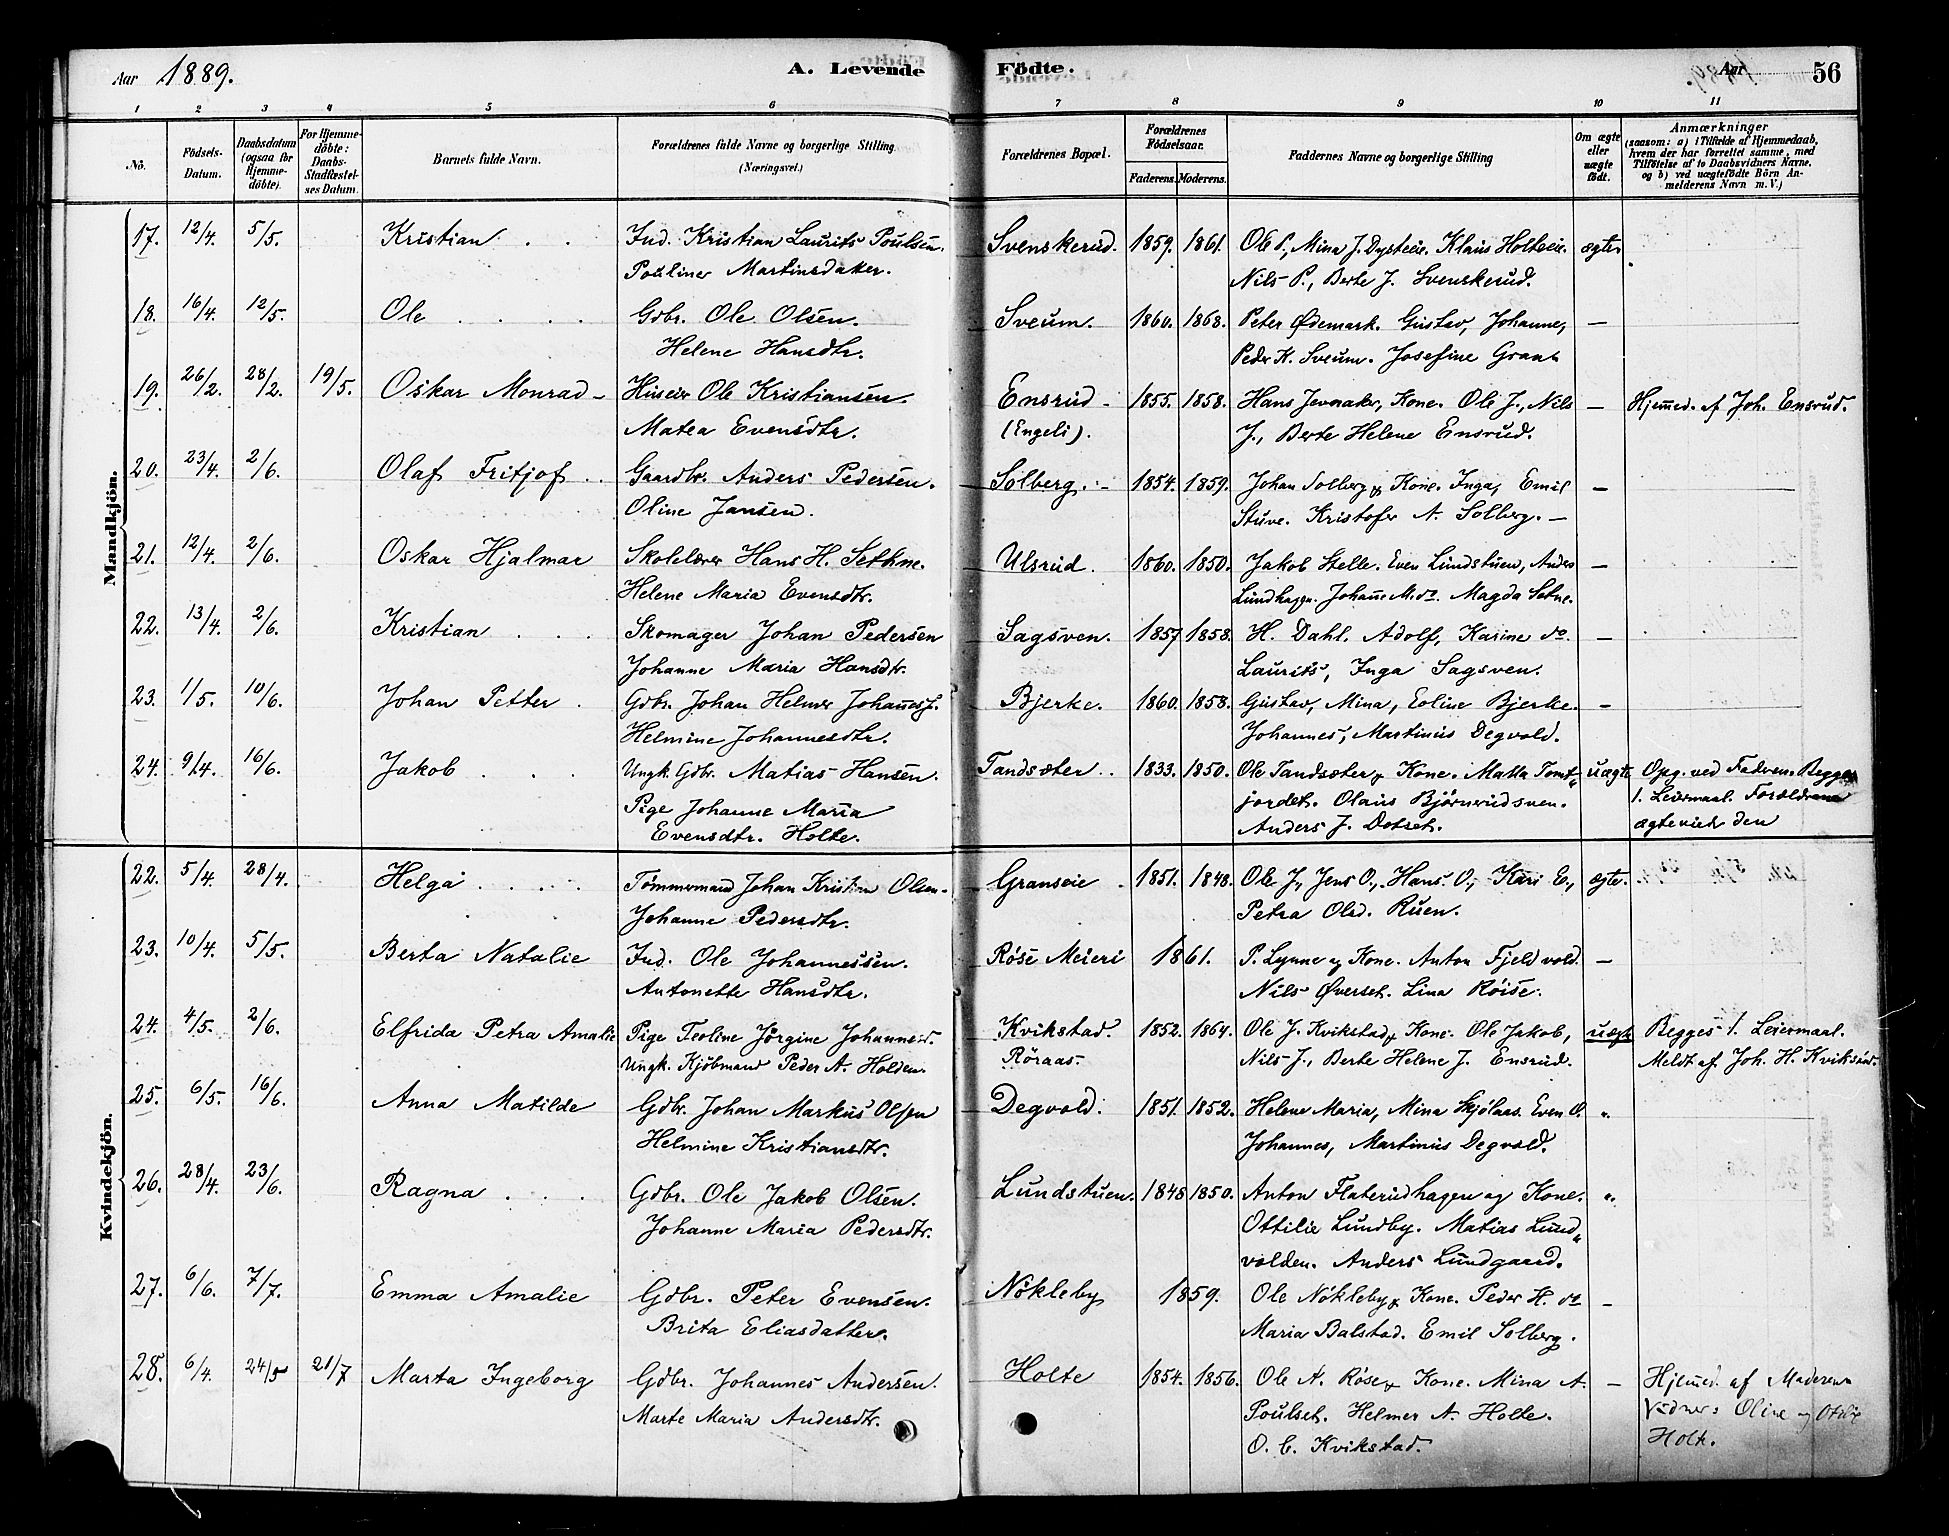 Aar 1889. A. Levende Födte. Aar 56
1 2 3 4 5 6 7 8 9 10 11
No. Födsels-Datum. Daabsdatum (ogsaa for Hjemme-döbte). For Hjemme-döbte: Daabs-Stadfæstel-ses Datum. Barnets fulde Navn. Forældrenes fulde Navne og borgerlige Stilling (Næringsvei.) Forældrenes Bopæl. Forældrenes Födselsaar. Faderens. Moderens. Faddernes Navne og borgerlige Stilling Om ægte eller uægte födt. Anmærkninger (saasom: a) i Tilfælde af Hjemmedaab, hvem der har forrettet samme, med Tilföielse af to Daabsvidners Navne, og b) ved uægtefödte Börn Anmelderens Navn m. V.)
Mandkjön.
17. 12/4. 5/5. Kristian Ind. Kristian Laurits Poulsen. Svenskerud. 1859. 1861. Ole P., Mina J. Dysteeie. Klaus Holteeie. ægte.
Pouline Martinsdater. Nils P., Berte J. Svenskerud.
18. 16/4. 12/5. Ole Gdbr. Ole Olsen. Sveum. 1860. 1868. Peter Ødemark. Gustav, Johanne, —
Helene Hansdtr. Peder K. Sveum. Josefine Gran
19. 26/2. 28/2. 19/5. Oskar Monrad Huseier Ole Kristiansen. Ensrud 1855. 1858. Hans Jevnaker, Kone. Ole J., Nils — Hjemmed. af Joh. Ensrud.
Matea Evensdtr. (Engeli). J., Berte Helene Ensrud.
20. 23/4. 2/6. Olaf Fritjof Gaardbr. Anders Pedersen. Solberg. 1854. 1859. Johan Solberg & Kone. Inga, Emil —
Oline Jansen. Stuve. Kristofer A. Solberg. —
21. 12/4. 2/6. Oskar Hjalmar Skolelærer Hans H. Sethne. Ulsrud. 1860. 1850. Jakob Stelle. Even Lundstuen, Anders —
Helene Maria Evensdtr. Lundhagen. Johanne M. do. Magda Setne.
22. 13/4. 2/6. Kristian Skomager Johan Pedersen Sagsven. 1857 1858. H. Dahl. Adolf, Karine do. —
Johanne Maria Hansdtr. Laurits, Inga Sagsven.
23. 1/5. 10/6. Johan Petter Gdbr. Johan Helmer Johannes. Bjerke. 1860. 1858. Gustav, Mina, Eoline Bjerke. —
Helmine Johannesdtr. Johannes, Martinus Degvold.
24. 9/4. 16/6. Jakob Ungk. Gdbr. Matias Hansen. Tandsæter 1833. 1850. Ole Tandsæter & Kone. Matta Tomt- uægte Opg. ved Fadren. Begges
Pige Johanne Maria jordet. Olaus Bjørnerudsven. 1. Leiermaal. Forældrene
Evensdtr. Holte. Anders J. Dotset. ægteviet den
Kvindekjön.
22. 5/4. 28/4. Helga Tømmermand Johan Kristian Olsen. Granseie 1851. 1848. Ole J., Jens O., Hans O., Kari E., ægte.
Johanne Pedersdtr. Petra Olsd. Ruen.
23. 10/4. 5/5. Berta Natalie Ind. Ole Johannessen. Røse Meieri 1861. P. Lynne & Kone. Anton Fjeldvold. —
Antonette Hansdtr. Nils Øverset. Lina Røise.
24. 4/5. 2/6. Elfrida Petra Amalie Pige Teoline Jørgine Johannesd. Kvikstad. 1852. 1864. Ole J. Kvikstad & Kone. Ole Jakob, uægte Begges 1. Leiermaal.
Ungk. Kjöbmand Peder A. Holden. Röraas. Nils J., Berte Helene J. Ensrud. Meldt af Joh. H. Kvikstad.
25. 6/5. 16/6. Anna Matilde Gdbr. Johan Markus Olsen Degvold. 1851. 1852. Helene Maria, Mina Skjölaas. Even O. "
Helmine Kristiansdtr. Johannes, Martinus Degvold.
26. 28/4. 23/6. Ragna Gdbr. Ole Jakob Olsen. Lundstuen. 1848 1850. Anton Flaterudhagen og Kone. "
Johanne Maria Pedersdtr. Ottilie Lundby. Matias Lund-
volden. Anders Lundgaard.
27. 6/6. 7/7. Emma Amalie Gdbr. Peter Evensen. Nökleby 1859. Ole Nökleby & Kone. Peder H. do —
Brita Eliasdatter. Maria Balstad. Emil Solberg.
28. 6/4. 24/5 21/7 Marta Ingeborg Gdbr. Johannes Andersen. Holte 1854. 1856. Ole A. Røse & Kone. Mina A. — Hjemmed. af Maderen
Marte Maria Andersdtr. Poulset. Helmer A. Holte. Vidner: Oline og Otilie
O. C. Kvikstad. Holt.